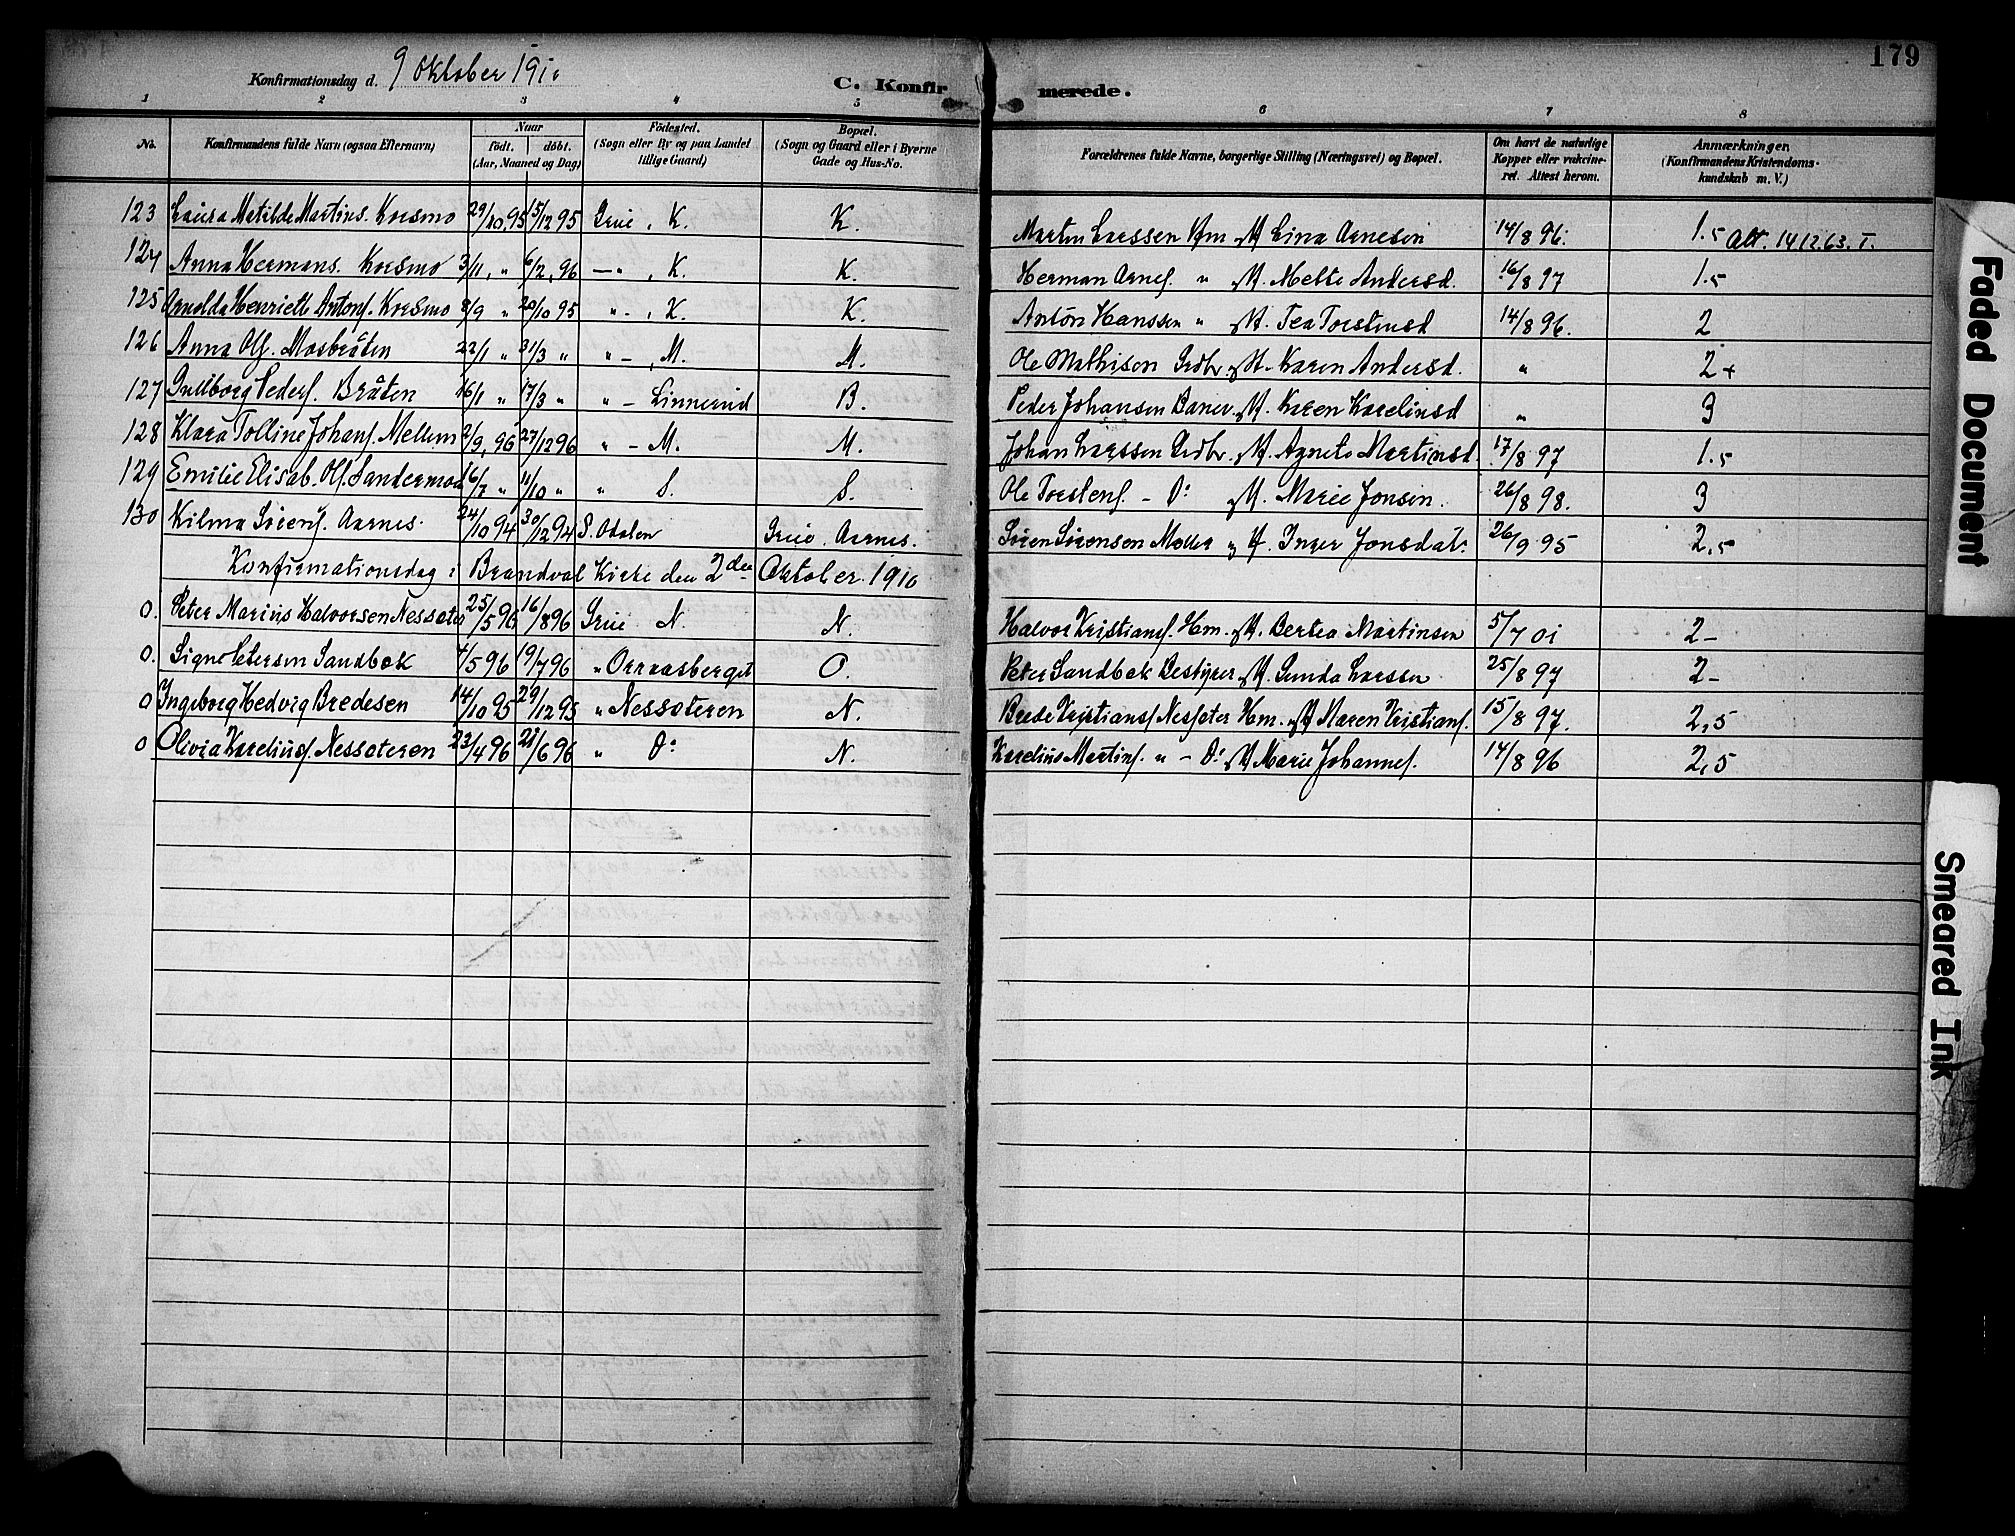 179
Konfirmationsdag d. 9 Oktober 1910
C. Konfir merede.
1 2 3 4 5 6 7 8
No. Konfirmandens fulde Navn (ogsaa Efternavn) Naar født. døbt. (Aar, Maaned og Dag) Födested. (Sogn eller By og paa Landet tillige Gaard) Bopæl. (Sogn og Gaard eller i Byerne Gade og Hus-No. Forældrenes fulde Navne, borgerlige Stilling (Næringsvei) og Bopæl. Om havt de naturlige Kopper eller vakcineret. Attest herom. Anmærkninger. (Konfirmandens Kristendomskundskab m. V.)
123 Laura Matilde Martins. Korsmo 29/10, 95 15/12 95 Grue, K. K. Martin Larssen Hm og H Lina Arnesen 14/8 96. 1.5 Att. 14 12.63. T.
124 Anna Hermans. Korsmo 3/11, " 6/2, 96 —"—, K. K. Herman Arnes. " og H. Mette Andersd. 16/8 97 1.5
125 Arnolda Henriett Antons. Korsmo 8/9 " 20/10 95 " -, K. K. Anton Hanssen " og H. Tea Torstensd 14/8 96. 2
126 Anna Ols. Mosbråten 22/1 " 31/3 " " -, M. M. Ole Mathisen Grdbr. og H. Karen Andersd. " 2+
127 Ingeborg Peders. Bråten 16/1 " 17/3 " " - Linnerud B. Peder Johansen Baner. og H. Karen Karelinsd " 3
128 Klara Tolline Johans. Mellem 2/9, 96 27/12 96 " - M. M. Johan Larssen Grdbr. og H. Agnete Martinsd. 17/8 97 1.5
129 Emilie Elisab. Ols. Sandermoen 16/7 " 11/10 " " S. S. Ole Torstens. - Do og H. Marie Jonsen. 26/8 98. 3
130 Kilma Sörens. Aarnes. 24/10 94 30/12 94 S. Odalen Grue. Aarnes. Sören Sörensen Møller og H. Inger Jonsdat. 26/9 95 2,5
Konfirmationsdag i Brandval Kirke den 2den Oktober 1910
0. Peter Marius Halvorsen Nessæter 25/5 96 16/8 96 Grue N. N. Halvor Kristians. Hm. og H. Bertea Martinsen 5/7 01 2-
0. Signe Petersen Sandbæk 4/5 96 19/7 96 " Orraasberget O. Peter Sandbæk Bestyrer og H. Gunda Larssen 25/8 97 2-
0 Ingeborg Hedvig Bredesen 14/10 95 29/12 95 " Nessæteren N. Brede Kristians. Nessæter Hm. og H Maren Kristians. 15/8 97. 2,5
0 Olivia Karelius. Nessæteren 23/4 96 21/6 96 " Do N. Karelius Martins. " - Do og H Marie Johannes. 14/8 96 2,5
Faded Document
Smeared Ink